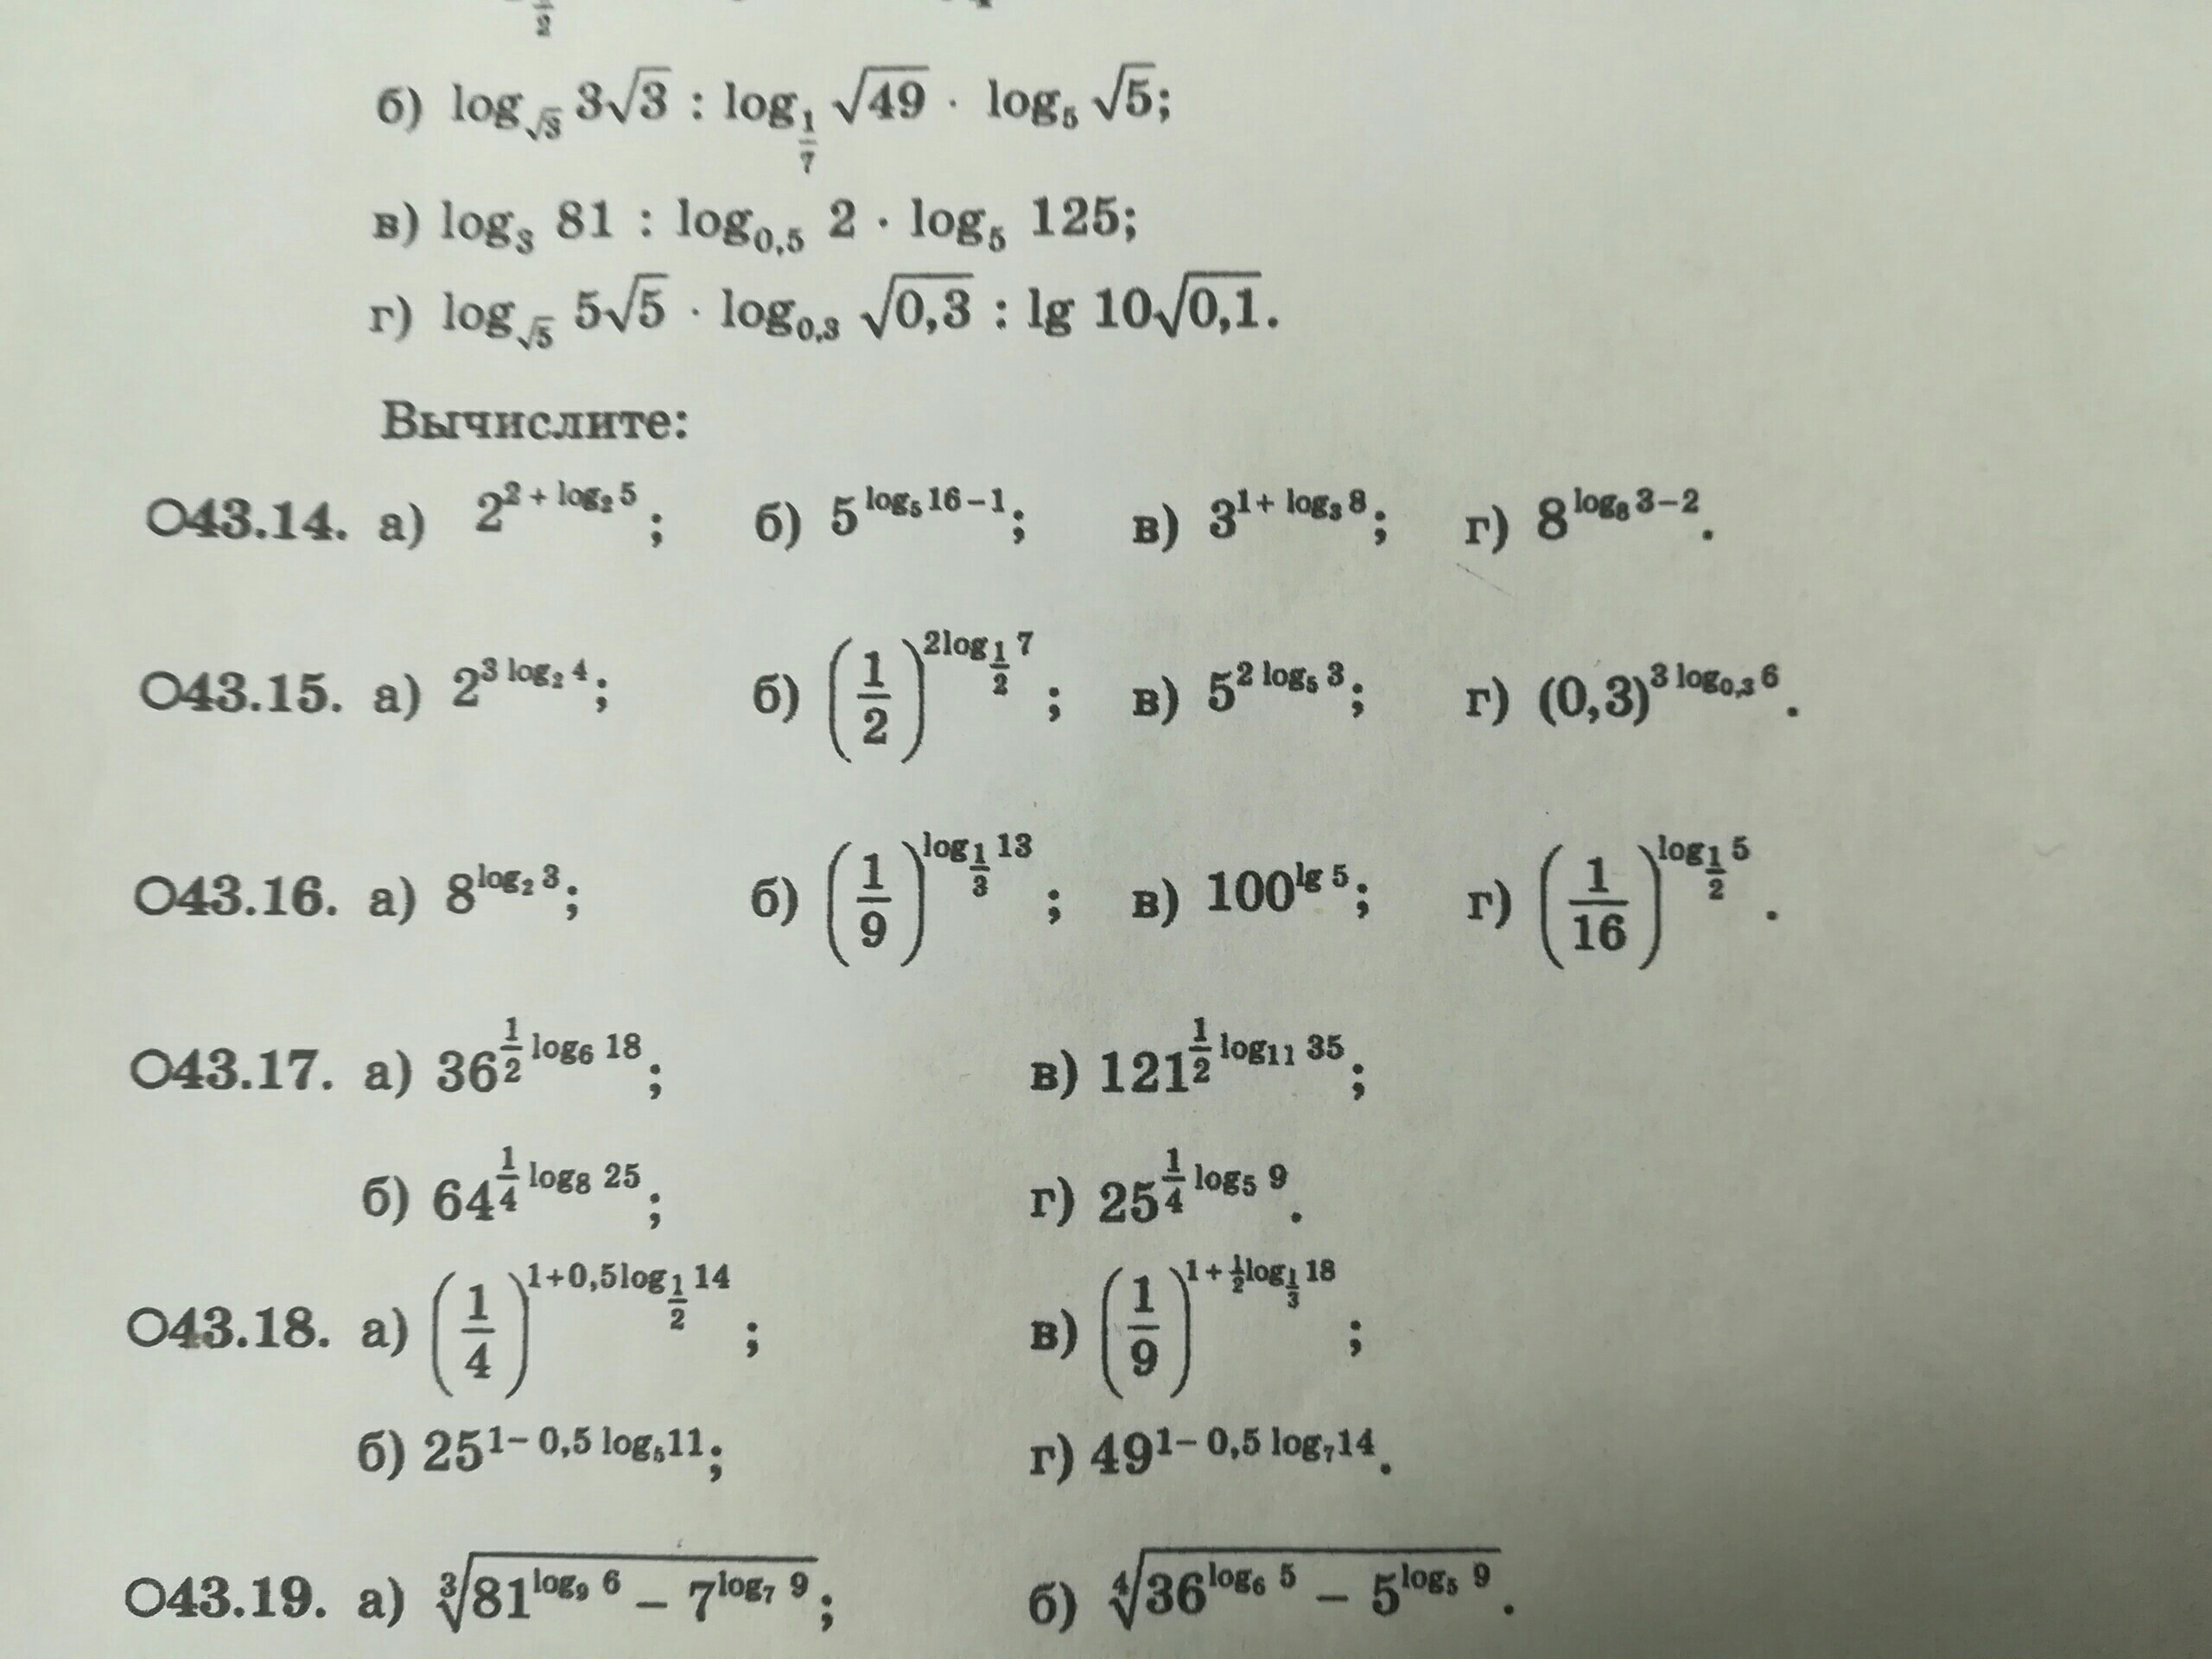 б) log_{√3} 3√3 : log_{1/7} √49 · log_5 √5;
в) log_3 81 : log_{0,5} 2 · log_5 125;
г) log_{√5} 5√5 · log_{0,3} √0,3 : lg 10√0,1.
Вычислите:
О43.14. а) 2^{2 + log_2 5}; б) 5^{log_5 16 – 1}; в) 3^{1 + log_3 8}; г) 8^{log_8 3 – 2}.
О43.15. а) 2^{3 log_2 4}; б) (1/2)^{2log_{1/2} 7}; в) 5^{2 log_5 3}; г) (0,3)^{3 log_{0,3} 6}.
О43.16. а) 8^{log_2 3}; б) (1/9)^{log_{1/3} 13}; в) 100^{lg 5}; г) (1/16)^{log_{1/2} 5}.
О43.17. а) 36^{1/2 log_6 18}; в) 121^{1/2 log_11 35};
б) 64^{1/4 log_8 25}; г) 25^{1/4 log_5 9}.
О43.18. а) (1/4)^{1+0,5log_{1/2} 14}; в) (1/9)^{1 + 1/2 log_{1/3} 18};
б) 25^{1– 0,5 log_5 11}; г) 49^{1– 0,5 log_7 14}.
О43.19. а) ∛(81^{log_9 6} – 7^{log_7 9}); б) ∜(36^{log_6 5} – 5^{log_5 9}).